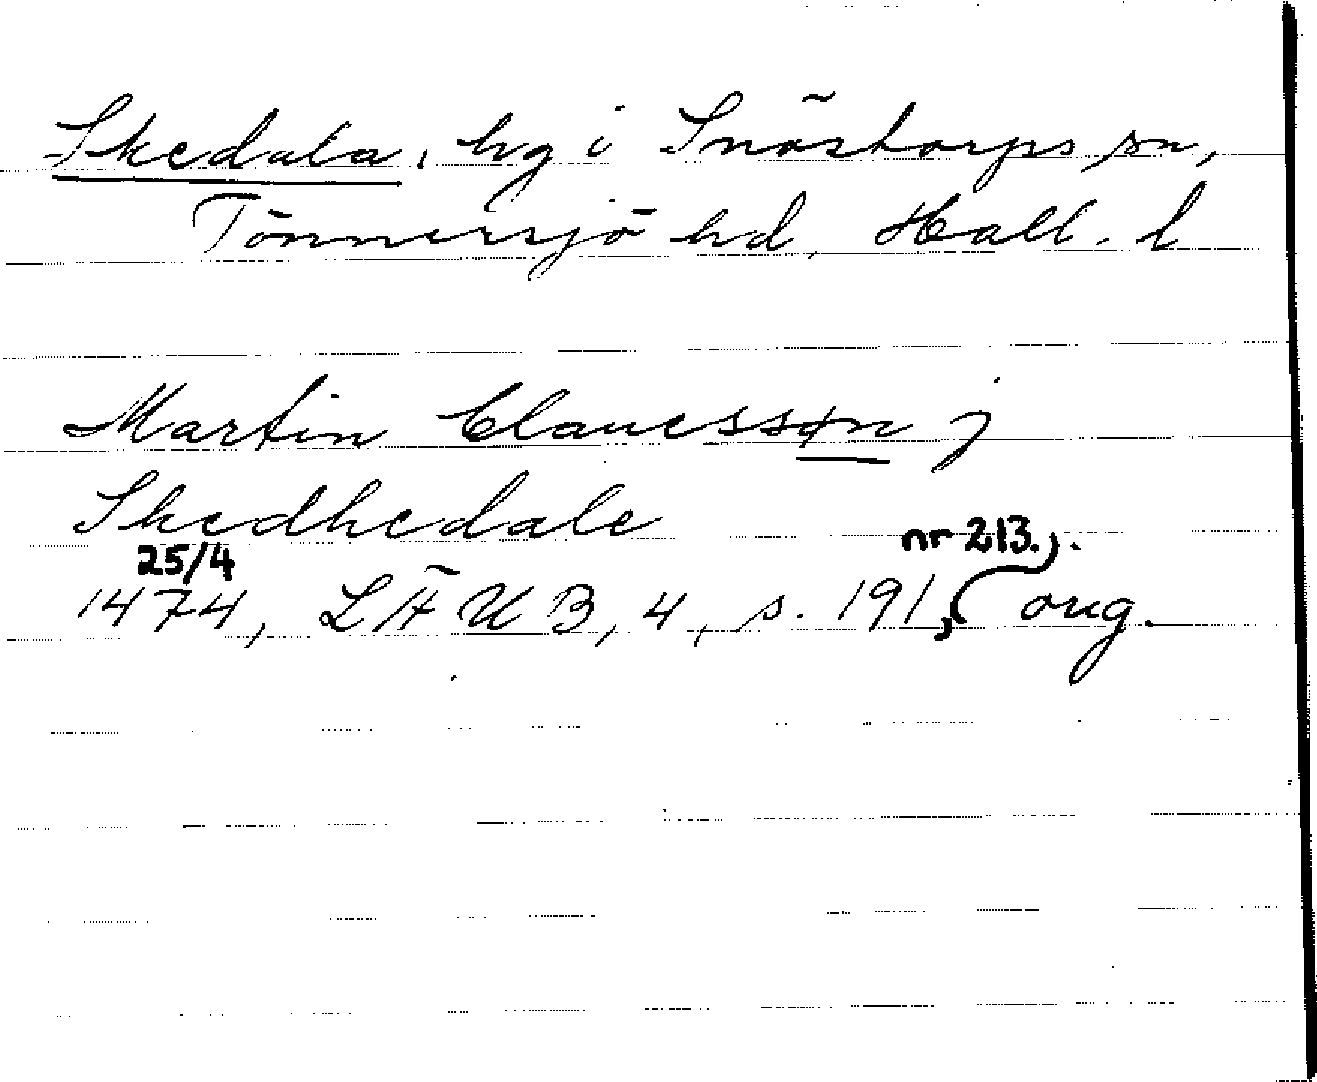 Skedala, hg i Snöstorps sn,
Tönnersjö hd, Hall. l
Martin Clauessøn j
Skedhedale
25/4 nr 213.).
1474, LÄUB, 4, s. 191, orig.